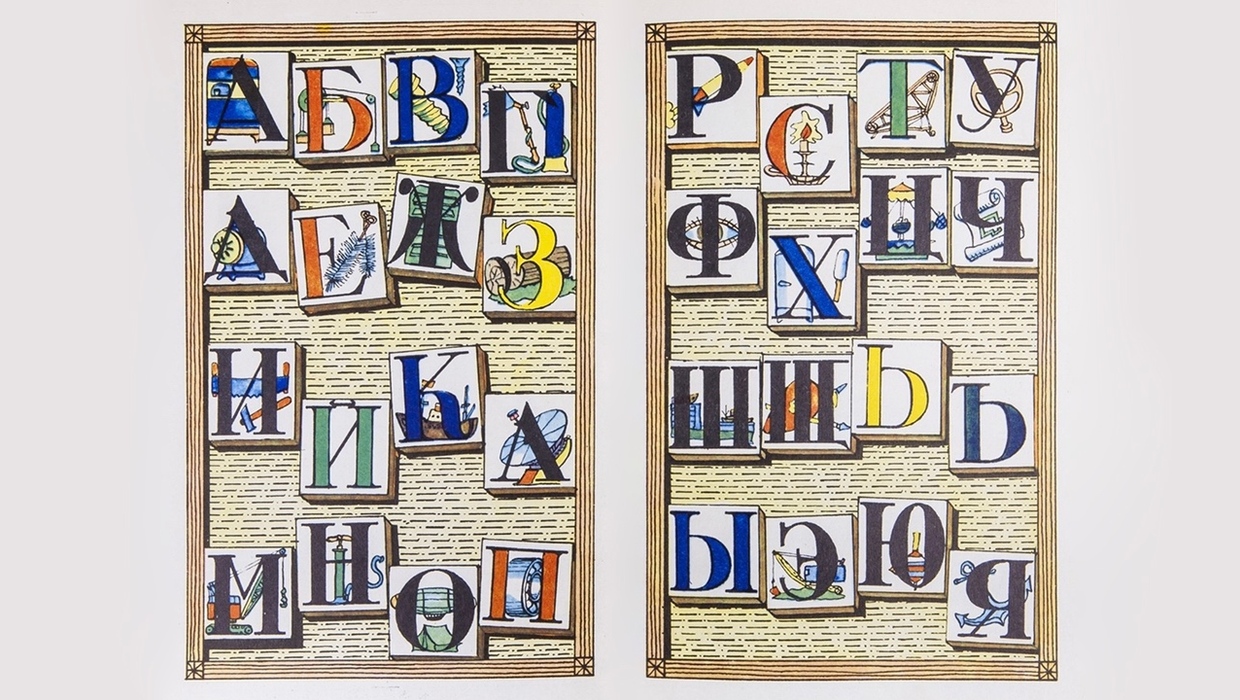 А Б В П
А Е Ж З
И Й К А
М Н О П
Р С Т У
Ф Х Н Ч
Ш Ш Ь Ъ
Ы Э Ю Я